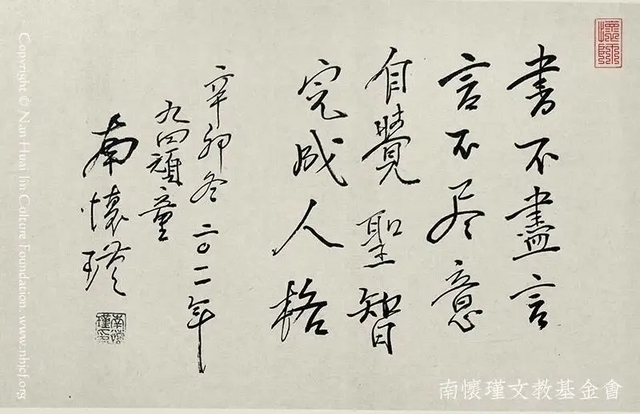 書不盡言
言不尽意
自覺聖智
完成人格
辛卯冬 二〇一一年
九四頑童
南懷瑾
南懷瑾文教基金會
Copyright © Nan Huai Jin Culture Foundation. www.nhjcf.org